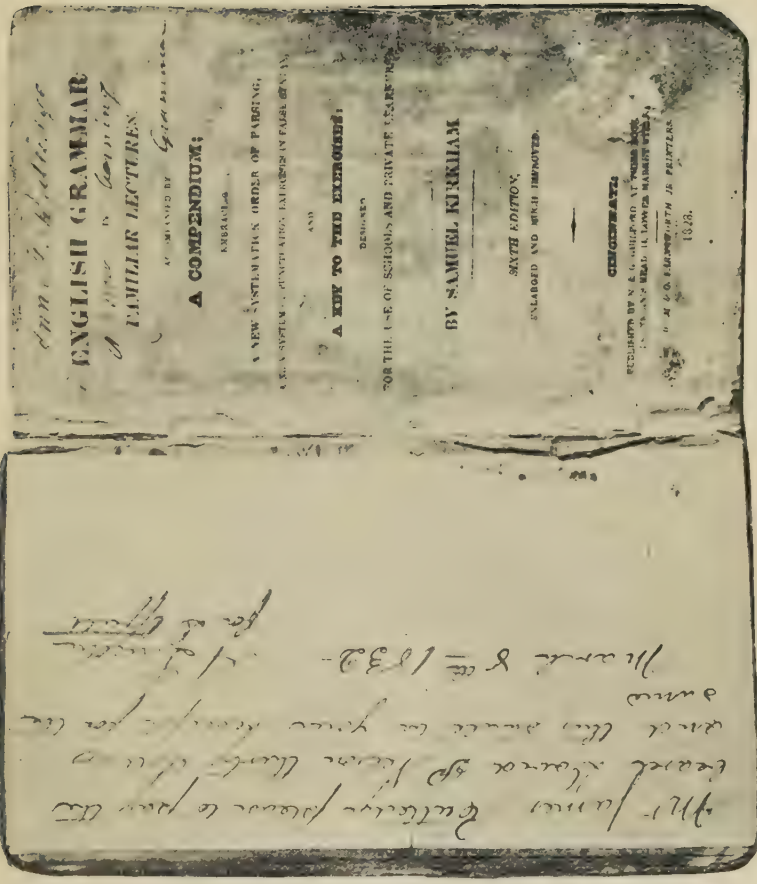 Ann M. Rutledge
ENGLISH GRAMMAR
is now IN learning
FAMILIAR LECTURES.
ACCOMPANIED BY Grammar
A COMPENDIUM;
EMBRACING
A NEW SYSTEMATICK ORDER OF PARSING,
A NEW SYSTEM OF PUNCTUATION, EXERCISES IN FALSE SYNTAX,
AND
A KEY TO THE EXERCISES;
DESIGNED
FOR THE USE OF SCHOOLS AND PRIVATE LEARNERS.
BY SAMUEL KIRKHAM
SIXTH EDITION,
ENLARGED AND MUCH IMPROVED.
CINCINNATI:
PUBLISHED BY N. & G. GUILFORD AT
LOWER MARKET STREET,
M & O. FARNSWORTH JR PRINTERS.
1828.
Mr James Rutledge please to pay the
bearer David P. thirty dollars
and this shall be your receipt for the
same
March 8th 1832--
A. Lincoln
for D. Offutt